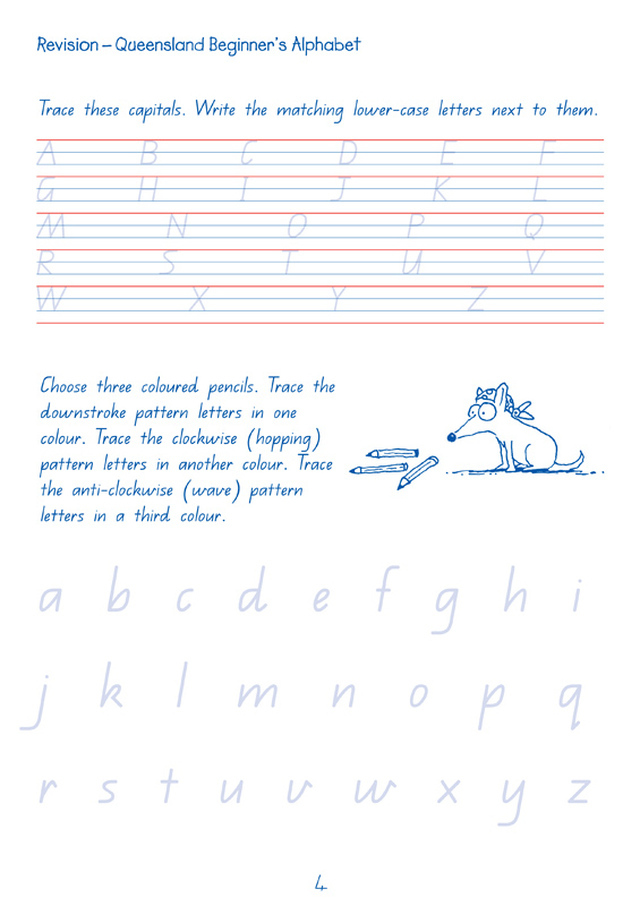 Revision – Queensland Beginner's Alphabet
Trace these capitals. Write the matching lower-case letters next to them.
A B C D E F
G H I J K L
M N O P Q
R S T U V
W X Y Z
Choose three coloured pencils. Trace the
downstroke pattern letters in one
colour. Trace the clockwise (hopping)
pattern letters in another colour. Trace
the anti-clockwise (wave) pattern
letters in a third colour.
a b c d e f g h i
j k l m n o p q
r s t u v w x y z
4